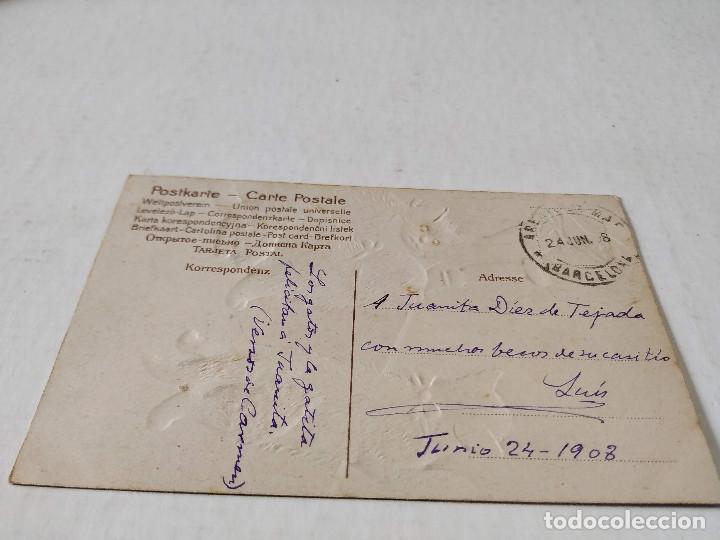 Postkarte – Carte Postale
Weltpostverein – Union postale universelle
Levelező-Lap – Correspondenzkarte – Dopisnice
Karta korespondencyjna – Korespondenční lístek
Briefkaart – Cartolina postale – Post card – Brefkort
Открытое письмо – Дописна Карта
TARJETA POSTAL
Korrespondenz
Los gatos y la gatita
felicitan á Juanita.
(Versos de Carmen)
Adresse
A Juanita Díez de Tejada
con muchos besos de su casitío
Luís
Junio 24-1908
ARENYS DE MAR
24 JUN. 8
BARCELONA
todocoleccion
todocoleccion.net